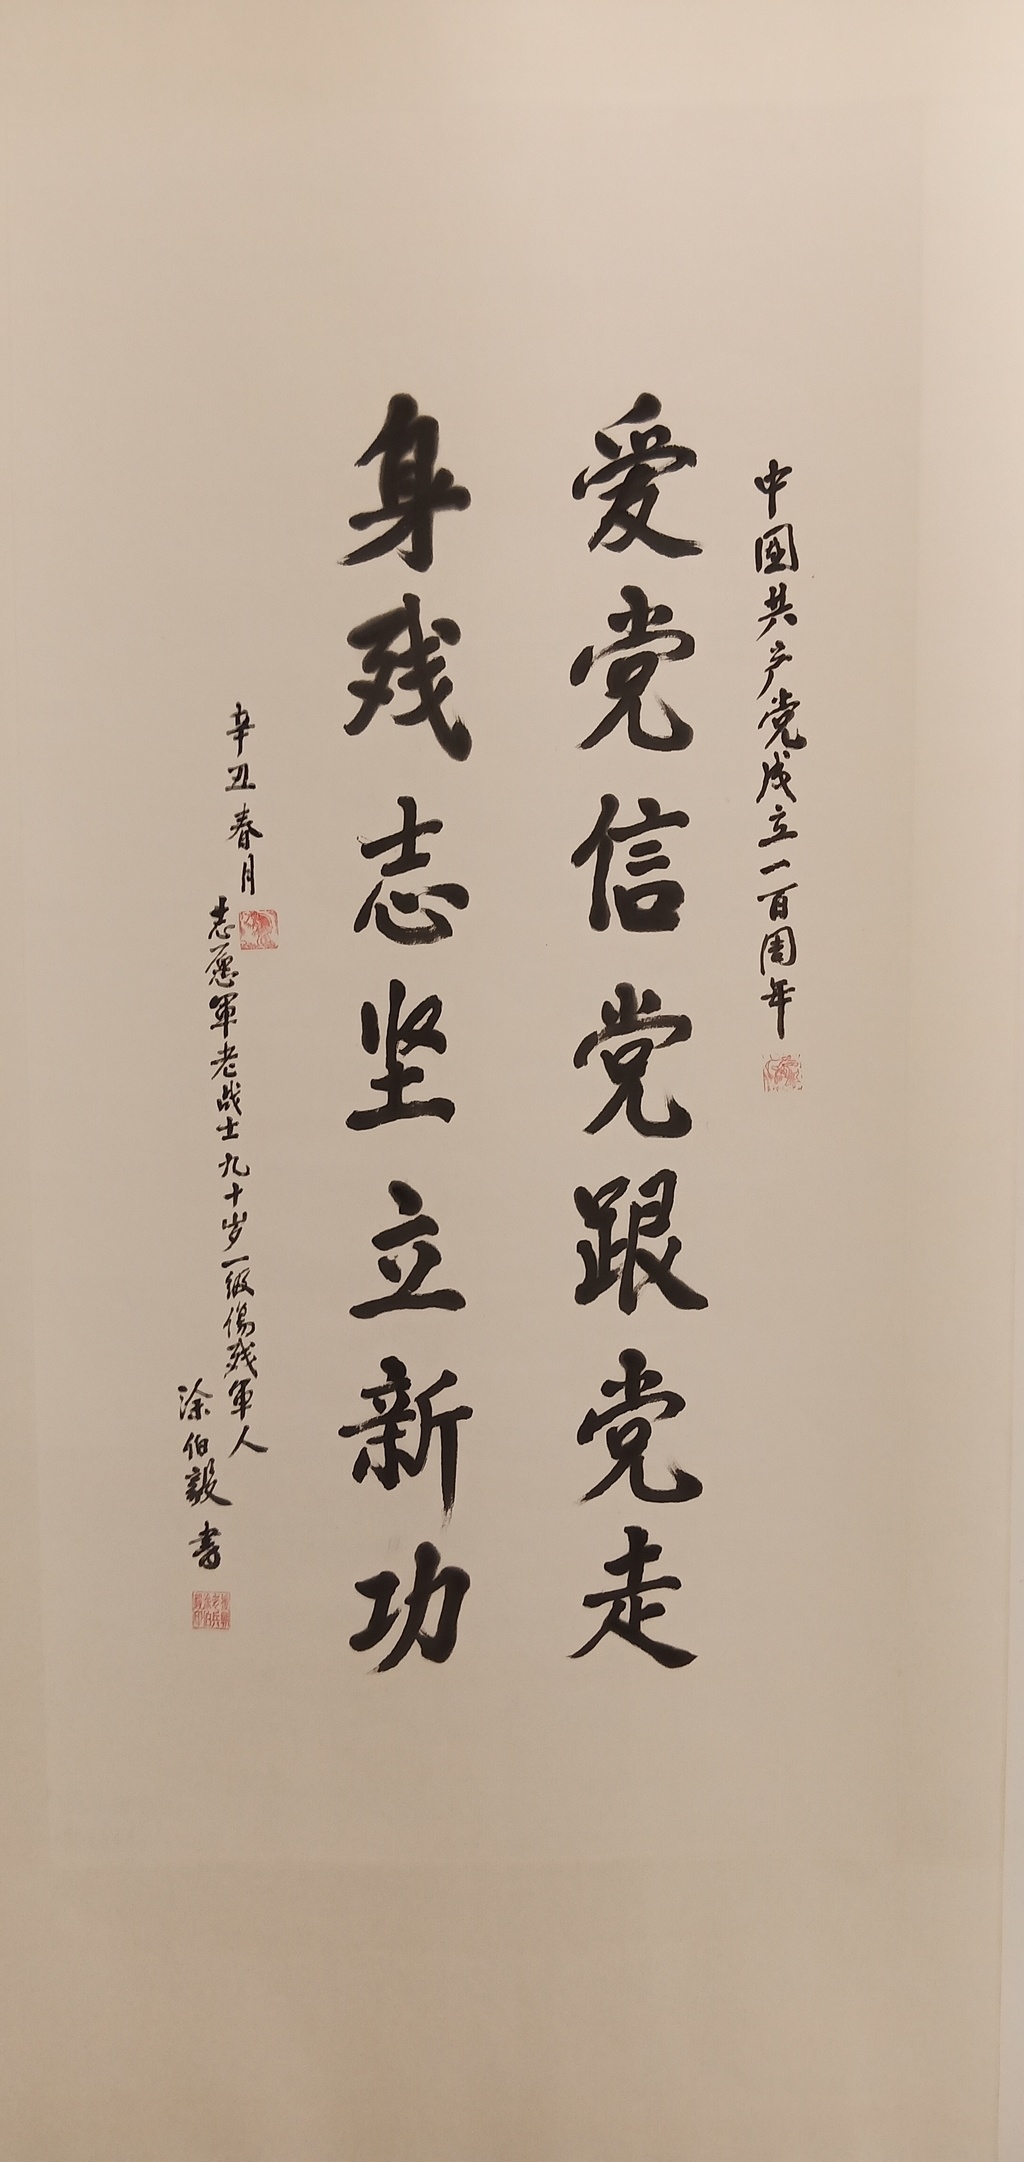 中国共产党成立一百周年
爱党信党跟党走
身残志坚立新功
辛丑春月
志愿軍老战士九十岁一级傷残軍人
涂伯毅書